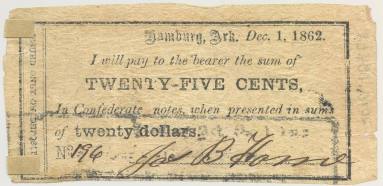 Hamburg, Ark. Dec. 1, 1862.
I will pay to the bearer the sum of
TWENTY-FIVE CENTS,
In Confederate notes, when presented in sums
of twenty dollars.
No 196 Jas B